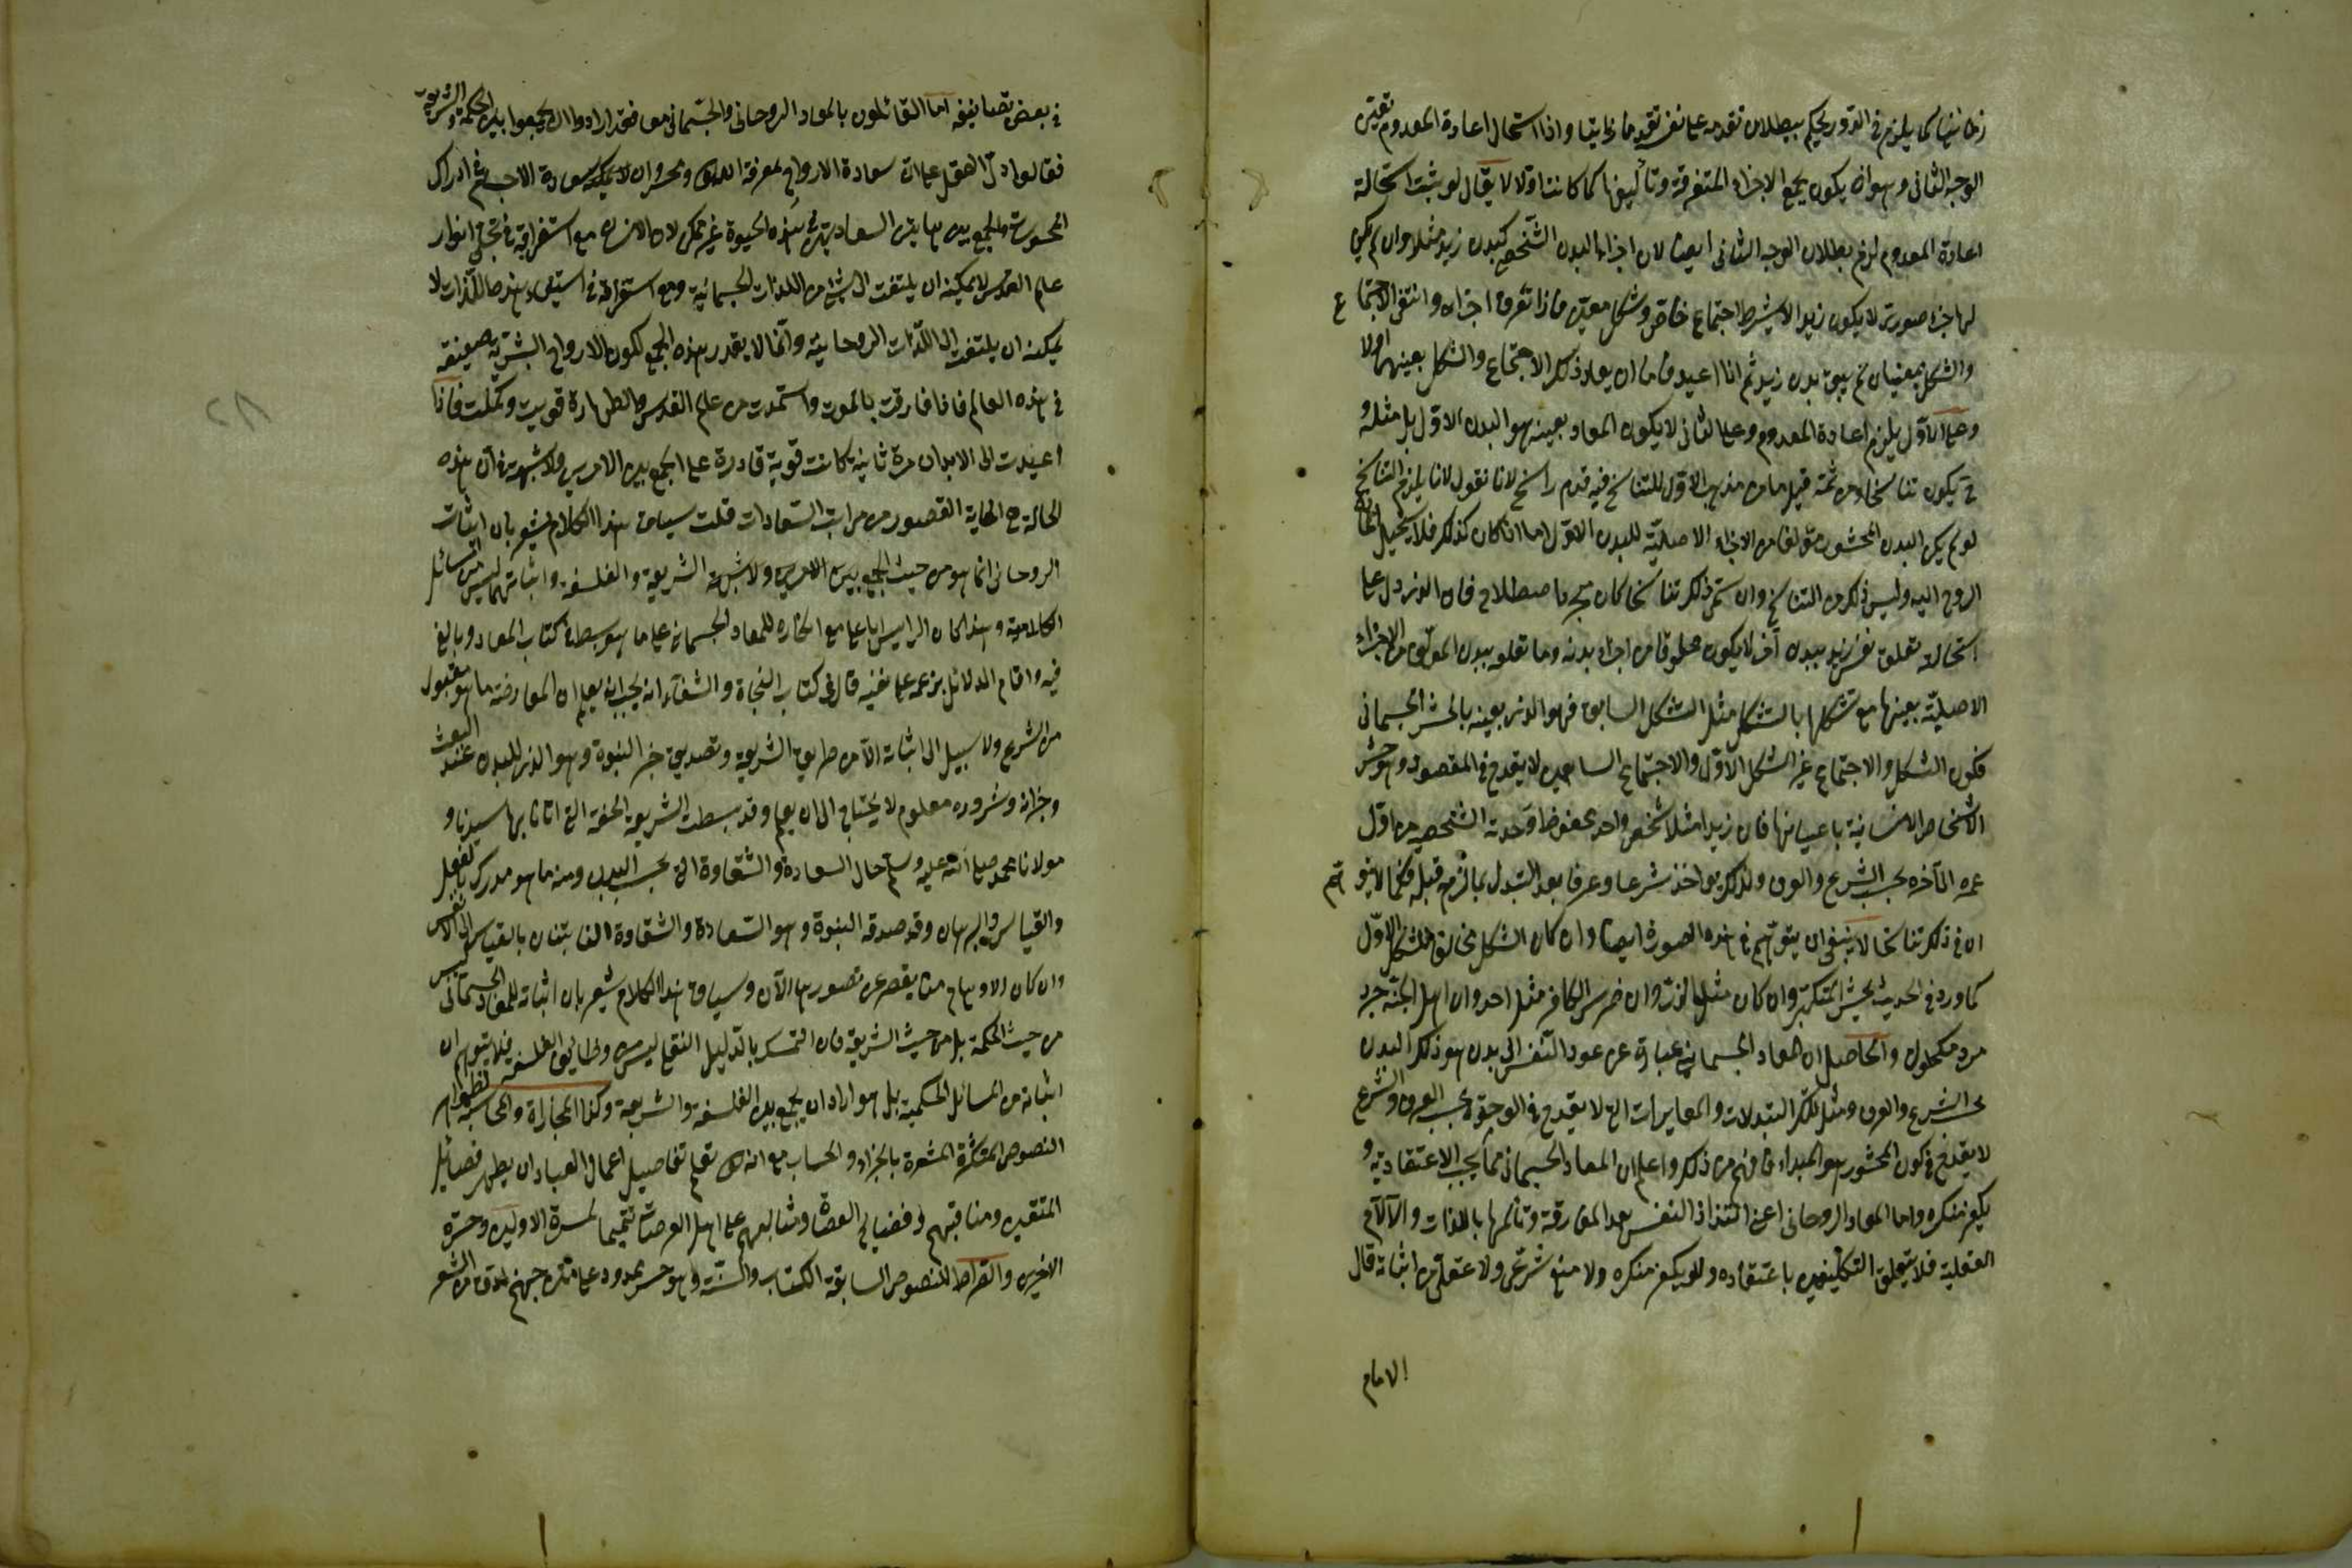 زمانيا كما يلزم في الدور يحكم ببطلان تقدمه على نفسه تقدما زمانيا واذا استحال اعادة المعدوم تعين
الوجه الثاني وهو ان يكون بجمع الاجزاء المتفرقة وتأليفها كما كانت اولا لا يقال لو ثبت استحالة
اعادة المعدوم لزم بطلان الوجه الثاني ايضا لان اجزاء البدن الشخصي كبدن زيد مثلا وان لم يكن
لها جزء صوري لا يكون زيدا الا بشرط اجتماع خاص وشكل معين فاذا تفرق اجزاؤه وانتفى الاجتماع
والشكل المعينان لم يبق بدن زيد ثم اذا اعيد فاما ان يعاد ذلك الاجتماع والشكل بعينهما اولا
وعلى الاول يلزم اعادة المعدوم وعلى الثاني لا يكون المعاد بعينه هو البدن الاول بل مثله و
ح يكون تناسخا ومن ثمة قيل ما من مذهب الا وللتناسخ فيه قدم راسخ لانا نقول لا يلزم التناسخ
لو لم يكن البدن المحشور مؤلفا من الاجزاء الاصلية للبدن الاول اما اذا كان كذلك فلا يستحيل اعادة
الروح اليه وليس ذلك من التناسخ وان سمي ذلك تناسخا كان مجرد اصطلاح فان الذي دل على
استحالة تعلق نفس زيد ببدن آخر لا يكون مخلوقا من اجزاء بدنه وما تعلقه ببدن المؤلف من الاجزاء
الاصلية بعينها مع تشكلها بالشكل مثل الشكل السابق فهو الذي يعنيه بالحشر الجسماني
فكون الشكل والاجتماع غير الشكل الاول والاجتماع السابق لا يقدح في المقصود وهو حشر
الاشخاص الانسانية باعيانها فان زيدا مثلا شخص واحد محفوظ وحدته الشخصية من اول
عمره الى آخره بحسب الشرع والعرف ولذلك يؤاخذ شرعا وعرفا بعد التبدل بما لزمه قبله فكما لا يتوهم
ان في ذلك تناسخا لا ينبغي ان يتوهم في هذه الصورة ايضا وان كان الشكل مخالفا للشكل الاول
كما ورد في الحديث يحشر المتكبرون كان مثل الذر وان ضرس الكافر مثل احد وان اهل الجنة جرد
مرد مكحلون والحاصل ان المعاد الجسماني عبارة عن عود النفس الى بدن هو ذلك البدن
بحسب الشرع والعرف ومثل هذه التبدلات والمغايرات التي لا يقدح في الوحدة بحسب العرف والشرع
لا يقدح في كون المحشور هو المبدأ فافهم من ذلك واعلم ان المعاد الجسماني مما يجب الاعتقاد به و
يكفر منكره واما المعاد الروحاني اعني التذاذ النفس بعد المفارقة وتألمها باللذات والآلام
العقلية فلا يتعلق التكليف باعتقاده ولا يكفر منكره ولا منع شرعي ولا عقلي من اثباته قال
الامام
في بعض تصانيفه اما القائلون بالمعاد الروحاني والجسماني معا فقد ارادوا ان يجمعوا بين الحكمة والشريعة
فقالوا دل العقل على ان سعادة الارواح بمعرفة الله ومحبته وان سعادة الاجسام في ادراك
المحسوسات والجمع بين هاتين السعادتين في هذه الحيوة غير ممكن لان الانسان مع استغراقه في تجلي انوار
عالم القدس لا يمكنه ان يلتفت الى شيء من اللذات الجسمانية ومع استغراقه في استيفاء هذه اللذات لا
يمكنه ان يلتفت الى اللذات الروحانية وانما لا يقدر هذه الجمع لكون الارواح البشرية ضعيفة
في هذه العالم فاذا فارقت بالموت واستمدت من عالم القدس والطهارة قويت وكملت فاذا
اعيدت الى الابدان مرة ثانية كانت قوية قادرة على الجمع بين الامرين ولا شبهة في ان هذه
الحالة هي الغاية القصوى من مراتب السعادات قلت سياق هذا الكلام يشعر بان اثبات
الروحاني انما هو من حيث الجمع بين الشريعة والفلسفة واثباتهما ليس من المسائل
الكلامية وهذا كما ان الرئيس ابا علي مع انكاره للمعاد الجسماني على ما هو بسطه في كتاب المعاد وبالغ
فيه واقام الدلائل بزعمه على نفيه قال في كتاب النجاة والشفاء انه يجب ان يعلم ان المعاد منه ما هو مقبول
من الشرع ولا سبيل الى اثباته الا من طريق الشريعة وتصديق خبر النبوة وهو الذي للبدن عند البعث
وخيراته وشروره معلوم لا يحتاج الى ان يعلم وقد بسطت الشريعة الحقة التي اتانا بها سيدنا و
مولانا محمد صلى الله عليه وسلم حال السعادة والشقاوة التي بحسب البدن ومنه ما هو مدرك بالعقل
والقياس والبرهان وقد صدقه النبوة وهو السعادة والشقاوة الثابتتان بالقياس الى الانفس
وان كان الاوهام منا يقصر عن تصورها الآن وسياق هذا الكلام يشعر بان اثباته للمعاد الجسماني ليس
من حيث الحكمة بل من حيث الشريعة فان التمسك بالدليل النقلي ليس من وظائف الفلسفة فلا يتوهم ان
اثباته من المسائل الحكمية بل هو اراد ان يجمع بين الفلسفة والشريعة وكذا المجازاة والمحاسبة لظواهر
النصوص المتكثرة المشعرة بالجزاء والحساب مع انه تعالى يعلم تفاصيل اعمال العباد ان يظهر فضائل
المتقين ومناقبهم وفضايح العصاة ومثالبهم على اهل العرصات تتميما لمسرة الاولين وحسرة
الاخرين والصراط للنصوص السابقة الكتاب والسنة وهو جسر ممدود على متن جهنم ادق من الشعر